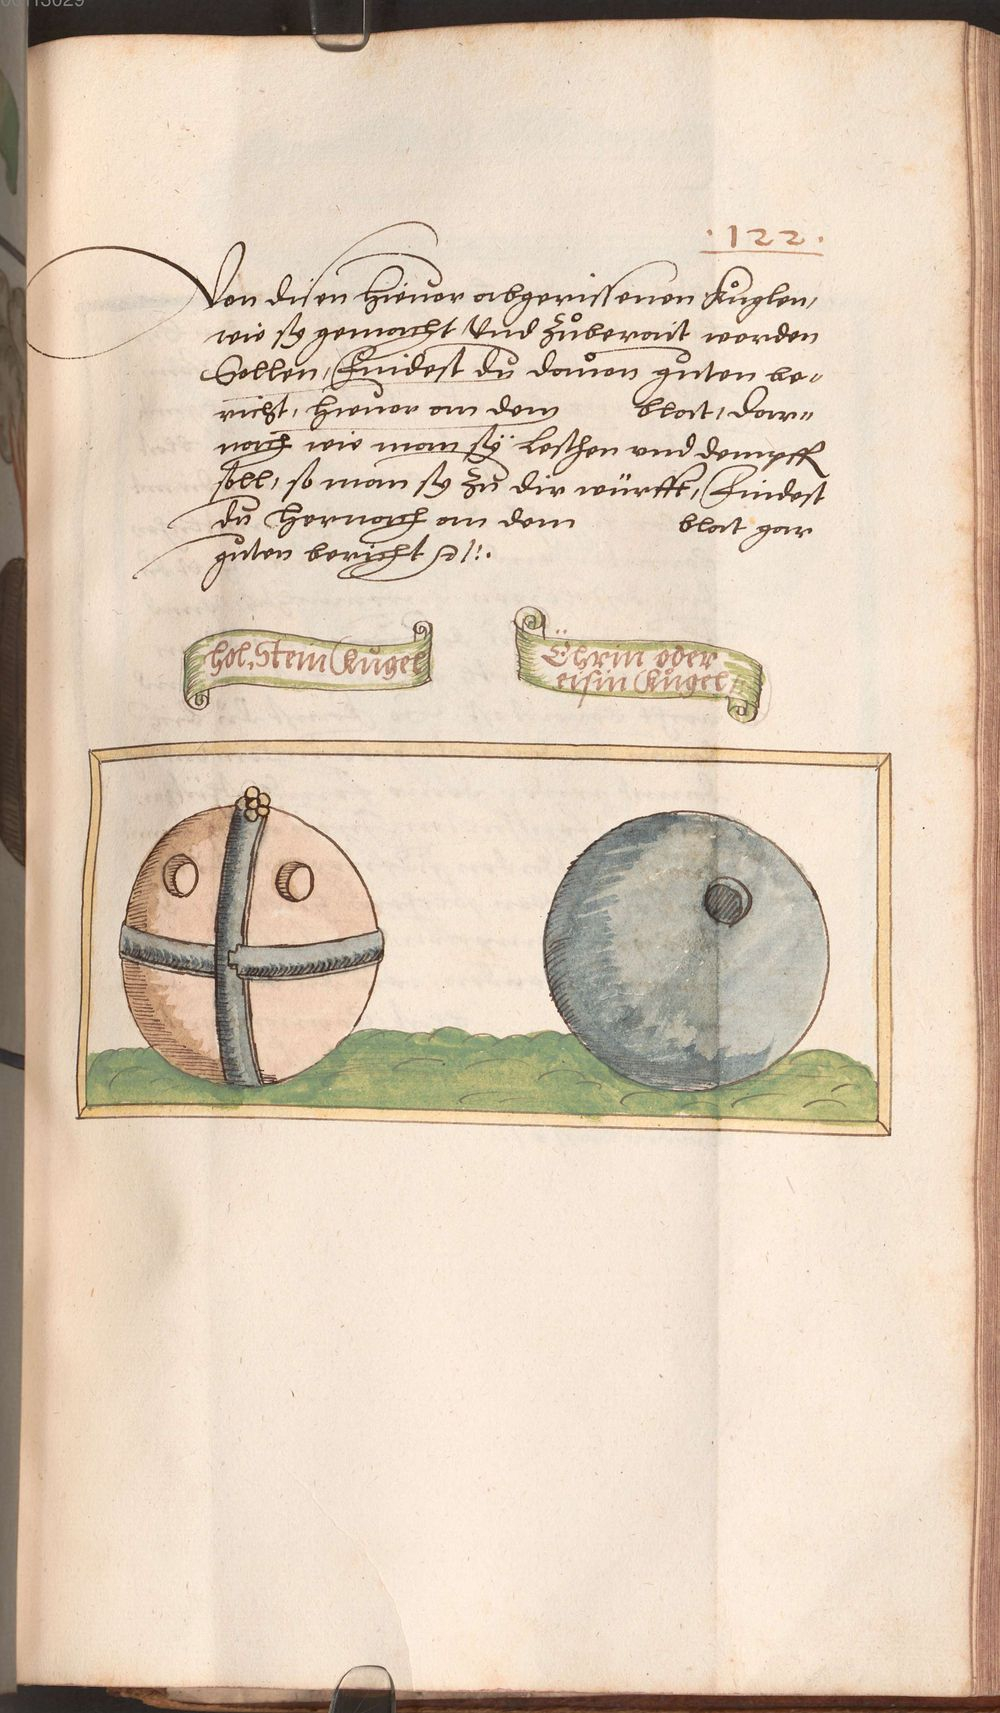 .122.
Von disen hieuor abgerissenen Kůglen,
wie sy gemacht Vnd Zůberait werden
Sollen, Findest du dauon guten be-
richt, hieuor an dem blat, Dar-
nach wie man sy leschen vnd dempffen
soll, so man sy Zu dir würfft, Findest
du hernach an dem blat gar
guten bericht
hol, Stein Kugel
Öhrin oder
eisin Kůgel,